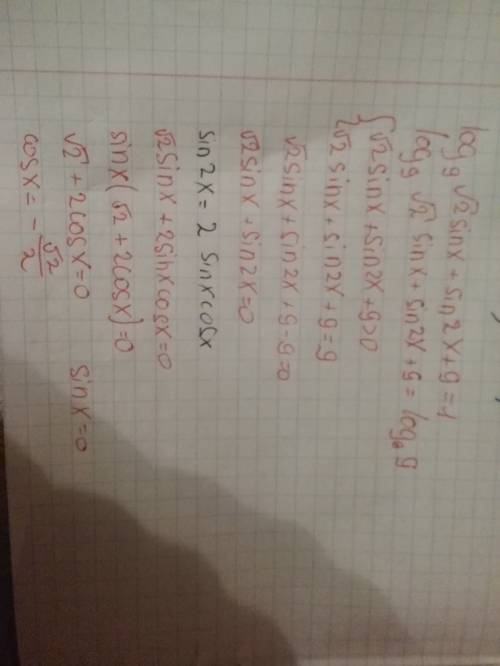 log₉ √2 sinx + sin2x + 9 = 1
log₉ √2 sinx + sin2x + 9 = log₉ 9
{ √2 sinx + sin2x + 9 > 0
{ √2 sinx + sin2x + 9 = 9
√2 sinx + sin2x + 9 - 9 = 0
√2 sinx + sin2x = 0
sin2x = 2 sinxcosx
√2 sinx + 2sinxcosx = 0
sinx(√2 + 2cosx) = 0
√2 + 2cosx = 0 sinx = 0
cosx = - √2/2